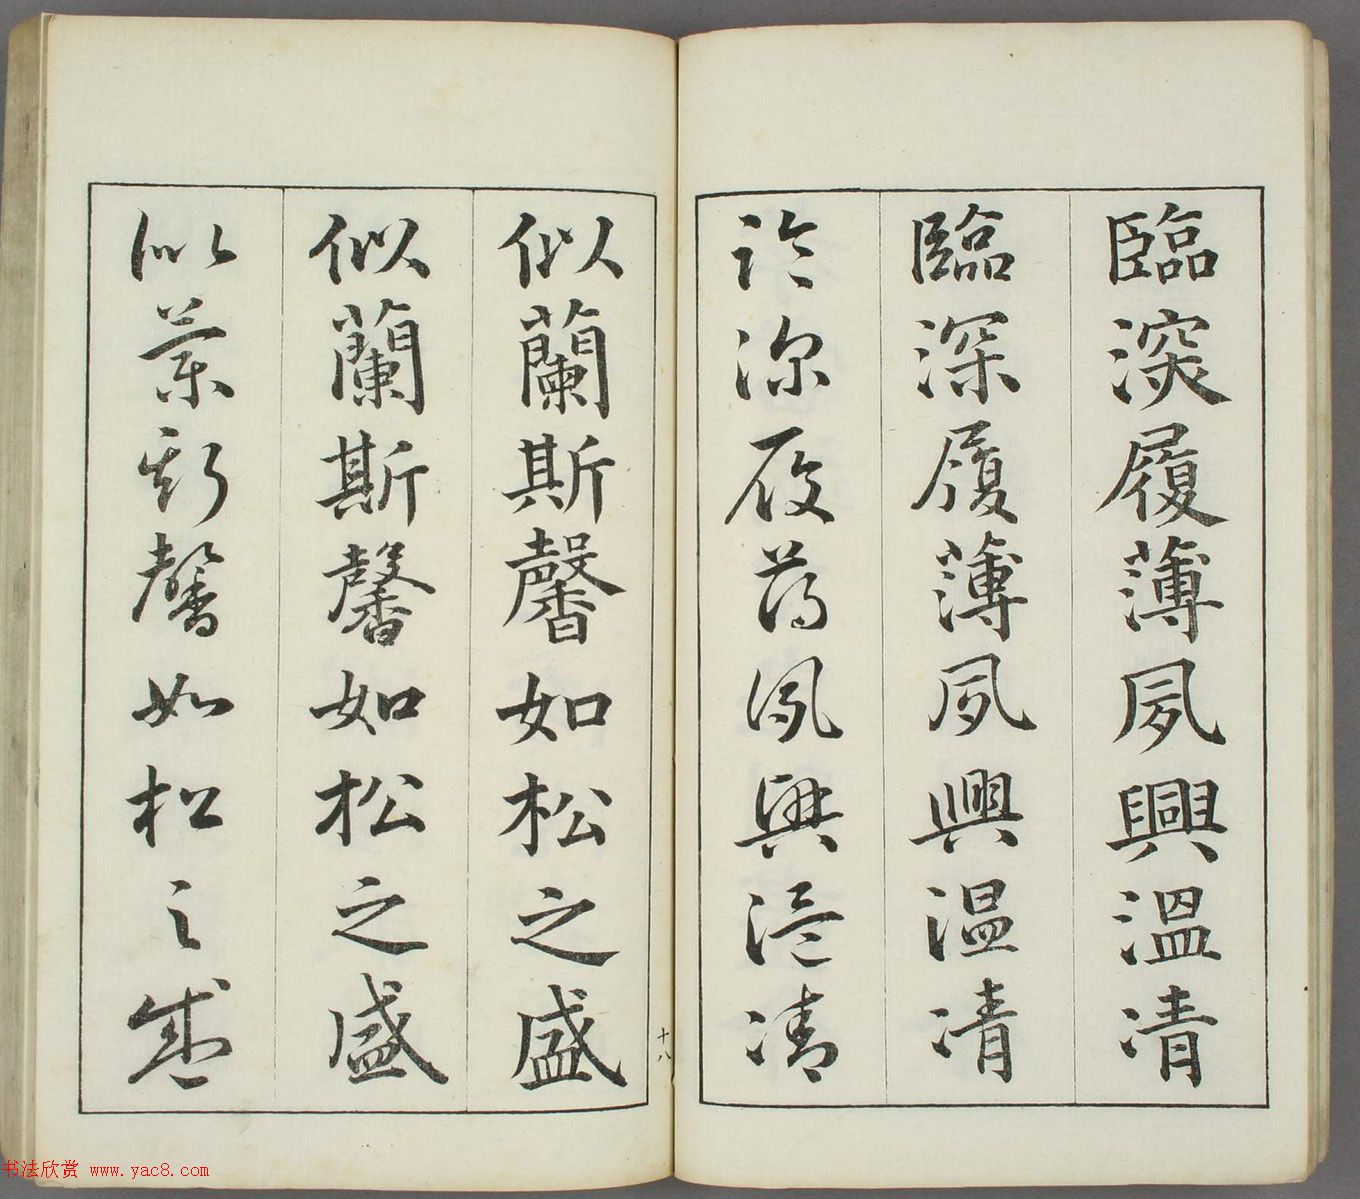 臨深履薄夙興溫凊
臨深履薄夙興温凊
臨深履薄夙興温凊
似蘭斯馨如松之盛
似蘭斯馨如松之盛
似蘭斯馨如松之盛
十八
书法欣赏 www.yac8.com